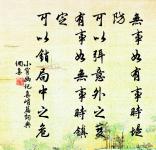 無事如有事時堤
防
可以弭意外之變
有事如無事時鎮
定
可以銷局中之危
小窗幽記集峭篇